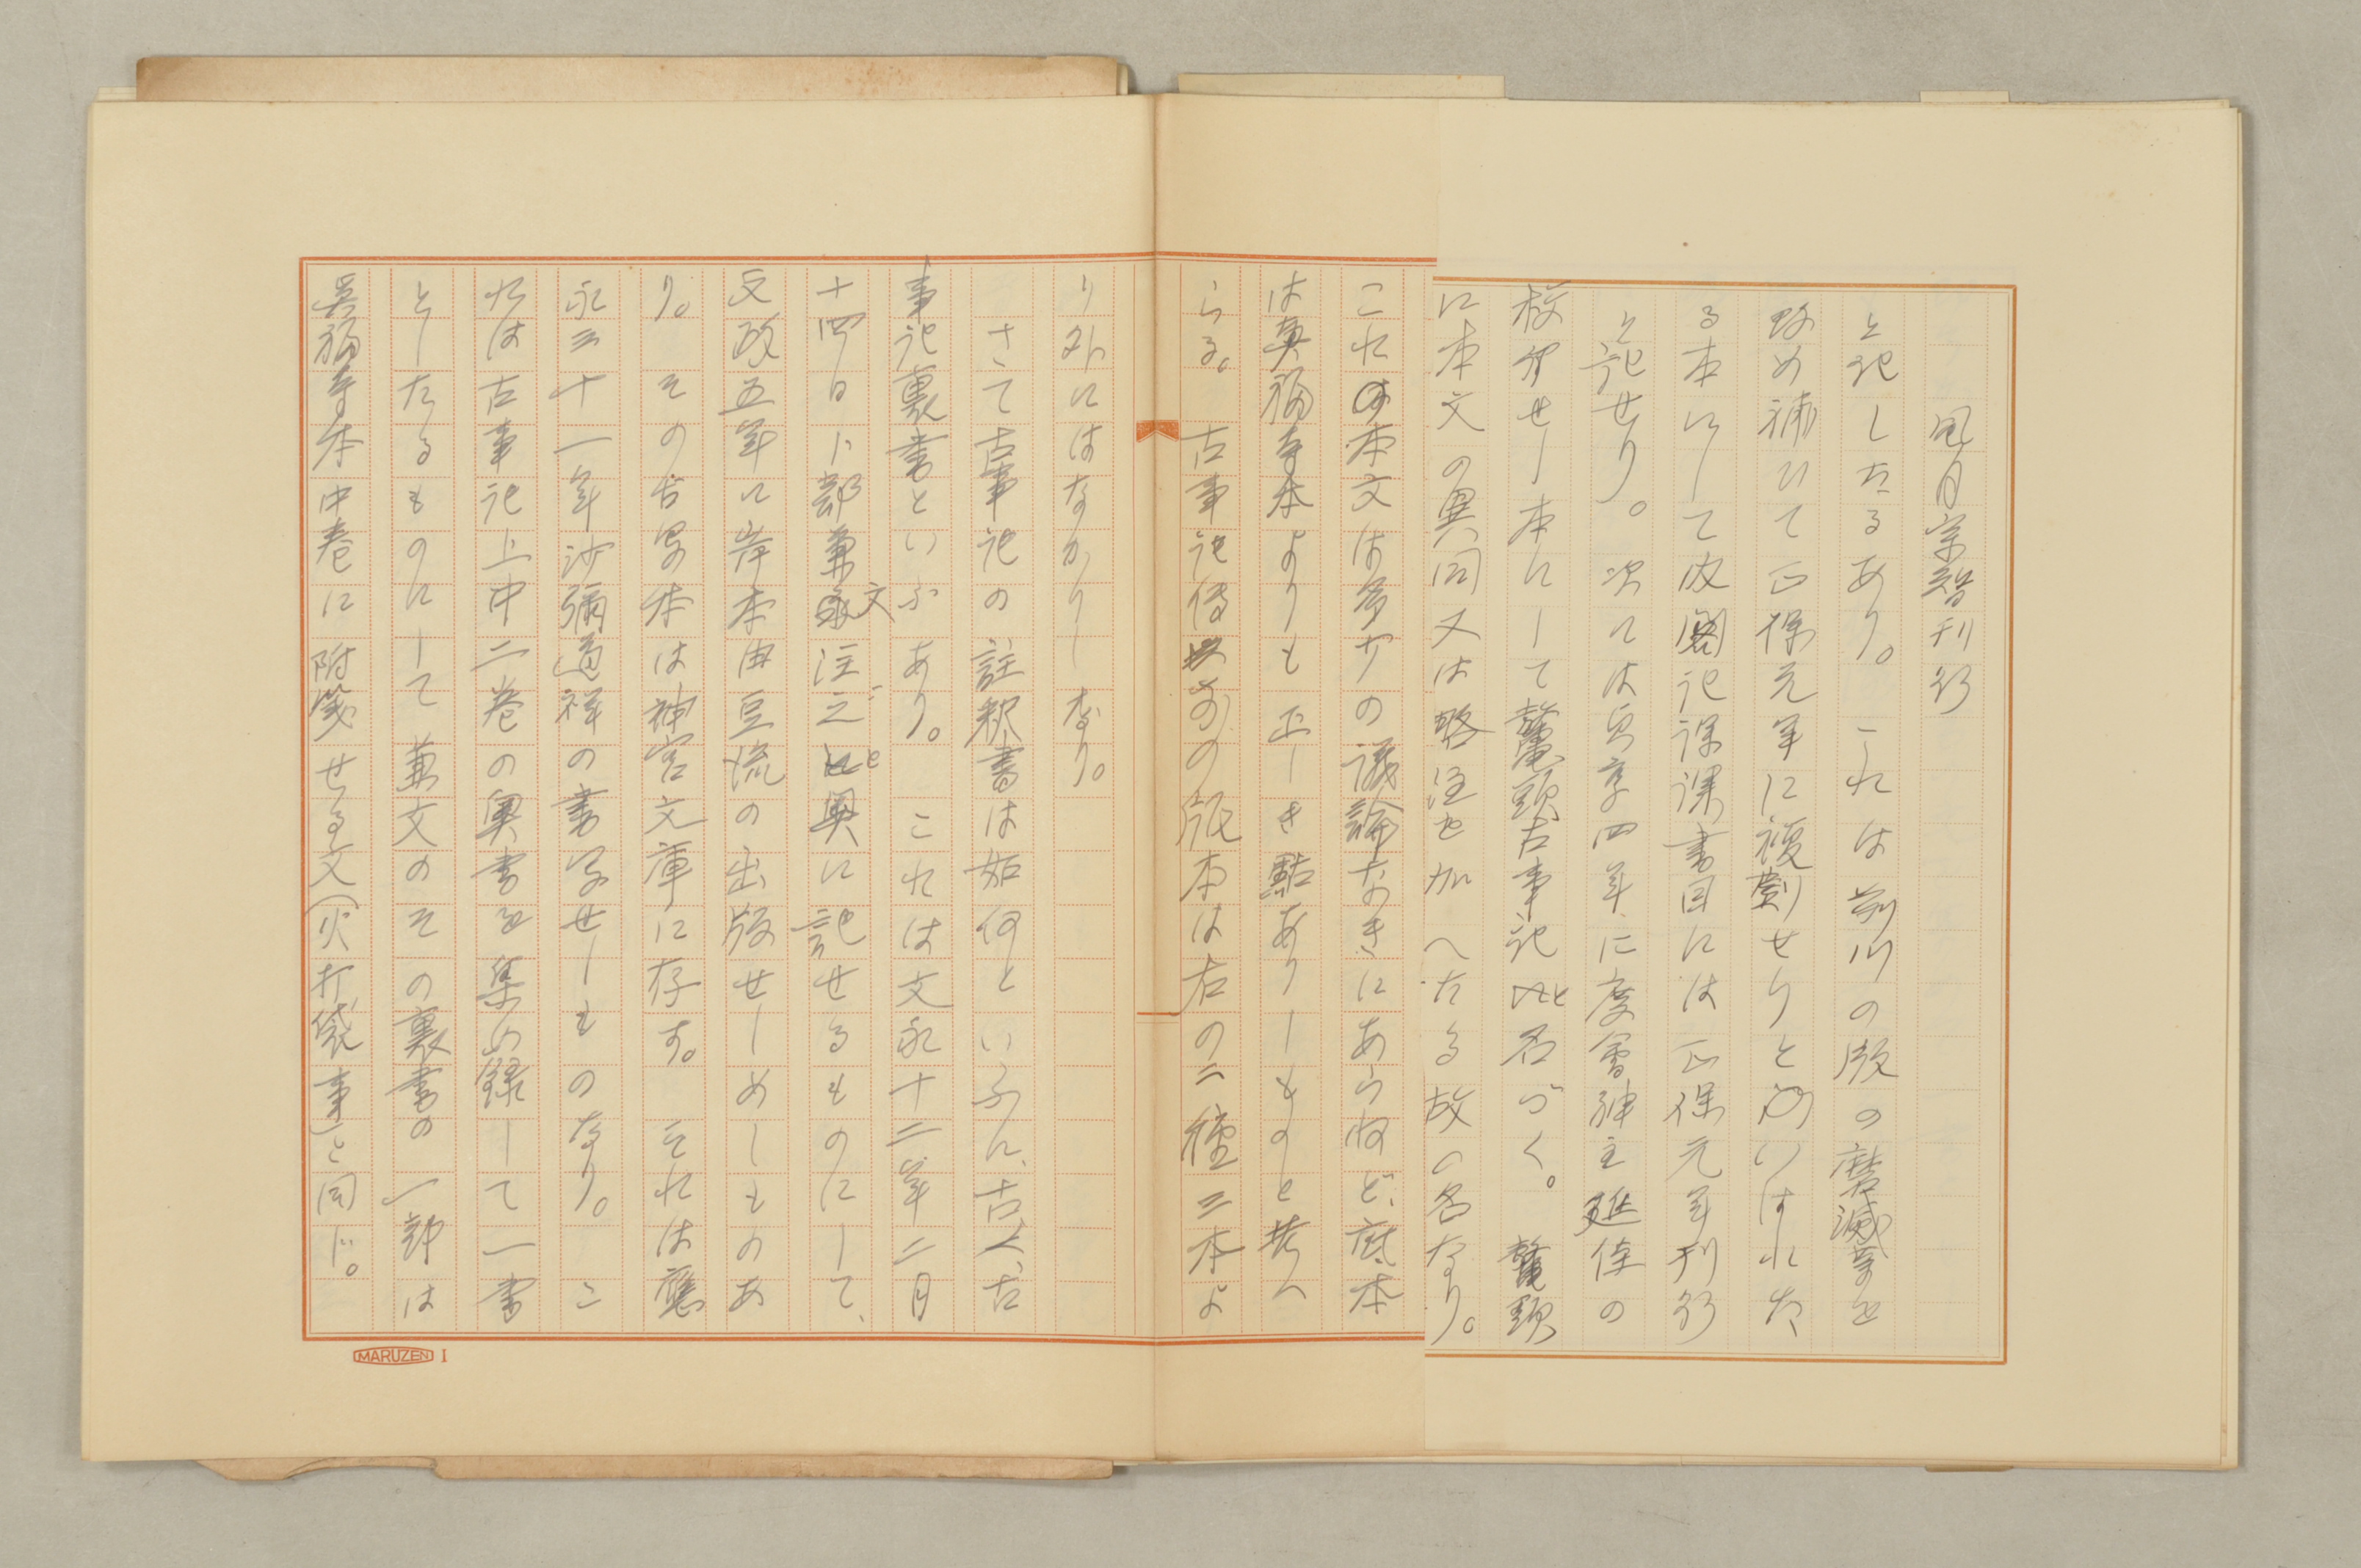 風月宗智刊行
と記したるあり。これは前川の版の磨滅等を
改め補ひて正保元年に複刻せりといはれた
る本にして内閣記課書目には正保元年刊行
と記せり。次には貞享四年に度會神主延佳の
校訂せし本にして鼇頭古事記と名づく。鼇頭
に本文の異同又は略注を加へたる故の名なり。
これの本文は多少の議論なきにあらねど、底本
は眞福寺本よりも正しき點ありしものと考へ
らる。古事記傳以前の版本は右の二種三本よ
り外にはなかりしなり。
さて古事記の註釈書は如何といふに、古く、古
事記裏書といふあり。これは文永十二年二月
十四日卜部兼文注之と奥に記せるものにして、
文政五年に岸本由豆流の出版せしめしものあ
り。その古写本は神宮文庫に存す。それは應
永三十一年沙彌道祥の書写せしものなり。こ
れは古事記上中二巻の奥書を集め録して一書
としたるものにして兼文のその裏書の一部は
眞福寺本中巻に附箋せる文(火打袋事)と同じ。
MARUZEN I